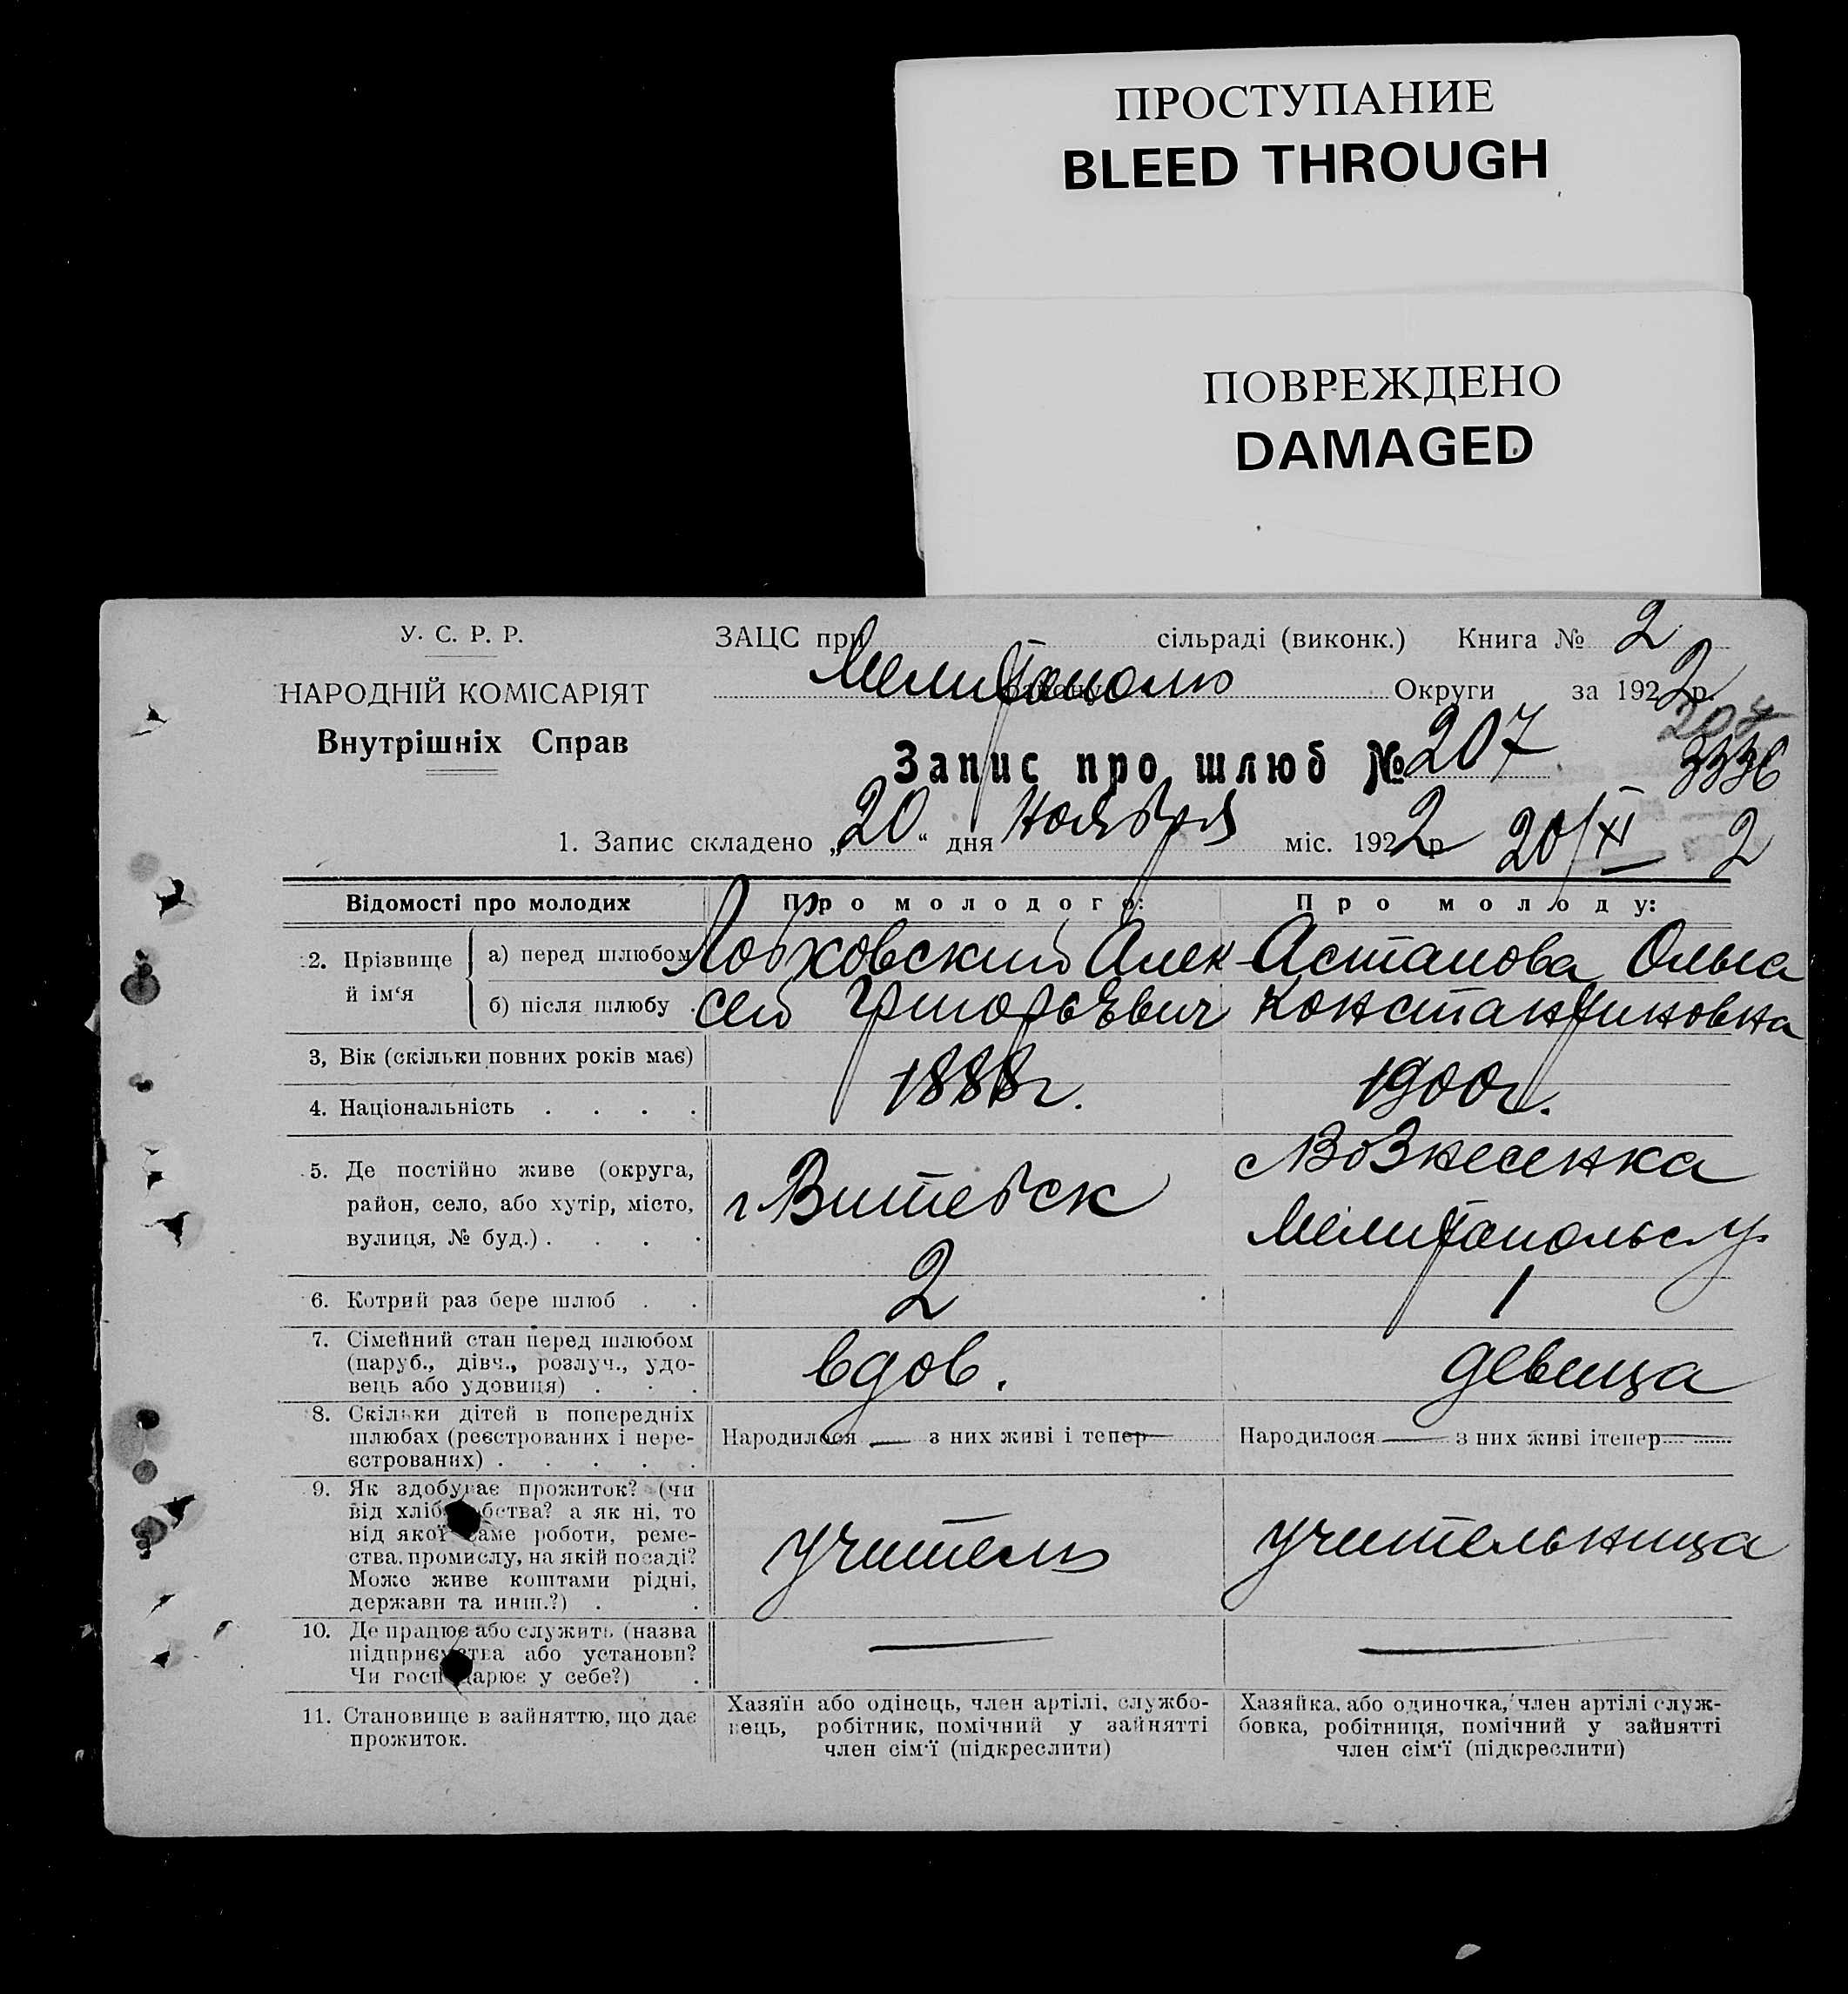 ПРОСТУПАНИЕ
BLEED THROUGH
ПОВРЕЖДЕНО
DAMAGED
У. С. Р. Р.
НАРОДНІЙ КОМІСАРІЯТ
Внутрішніх Справ
ЗАЦС при сільраді (виконк.) Книга № 2
Мелитополь Округи за 1922р.
207
Запис про шлюб № 207 3336
1. Запис складено „20“ дня Ноября міс. 1922р 20/XI 2
Відомості про молодих Про молодого: Про молоду:
2. Прізвище й ім‘я а) перед шлюбом Лобховский Алек Астапова Ольга
б) після шлюбу . сей Григорьевич Константиновна
3, Вік (скільки повних років має) 1888г. 1900г.
4. Національність . . . .
5. Де постійно живе (округа, район, село, або хутір, місто, вулиця, № буд.) . . . .
г Витебск
Вознесенка
Мелитопольс у
6. Котрий раз бере шлюб . . 2 1
7. Сімейний стан перед шлюбом
(паруб., дівч., розлуч., удо-
вець або удовиця) . . .
вдов. девица
8. Скільки дітей в попередніх
шлюбах (реєстрованих і нере-
єстрованих) . . . . .
Народилося — з них живі і тепер — Народилося — з них живі ітепер —
9. Як здобуває прожиток? (чи
від хліборобства? а як ні, то
від якої саме роботи, реме-
ства, промислу, на якій посаді?
Може живе коштами рідні,
держави та инш.?) . .
учитель учительница
10. Де працює або служить (назва
підприємства або установи?
Чи господарює у себе?) .
— —
11. Становище в зайняттю, що дає
прожиток.
Хазяїн або одінець, член артілі, службо-
вець, робітник, помічний у зайнятті
член сім‘ї (підкреслити)
Хазяйка, або одиночка, член артілі служ-
бовка, робітниця, помічний у зайнятті
член сім‘ї (підкреслити)